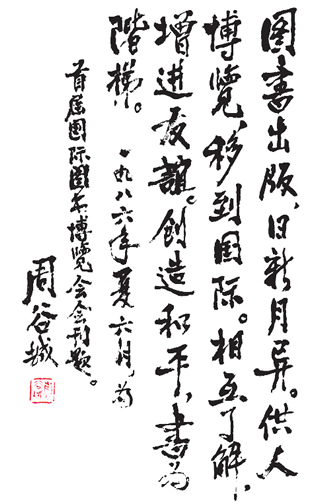 图书出版，日新月异。供人
博览，移到国际。相互了解，
增进友谊。创造和平，书为
阶梯。一九八六年夏六月，为
首届国际图书博览会会刊题。
周谷城